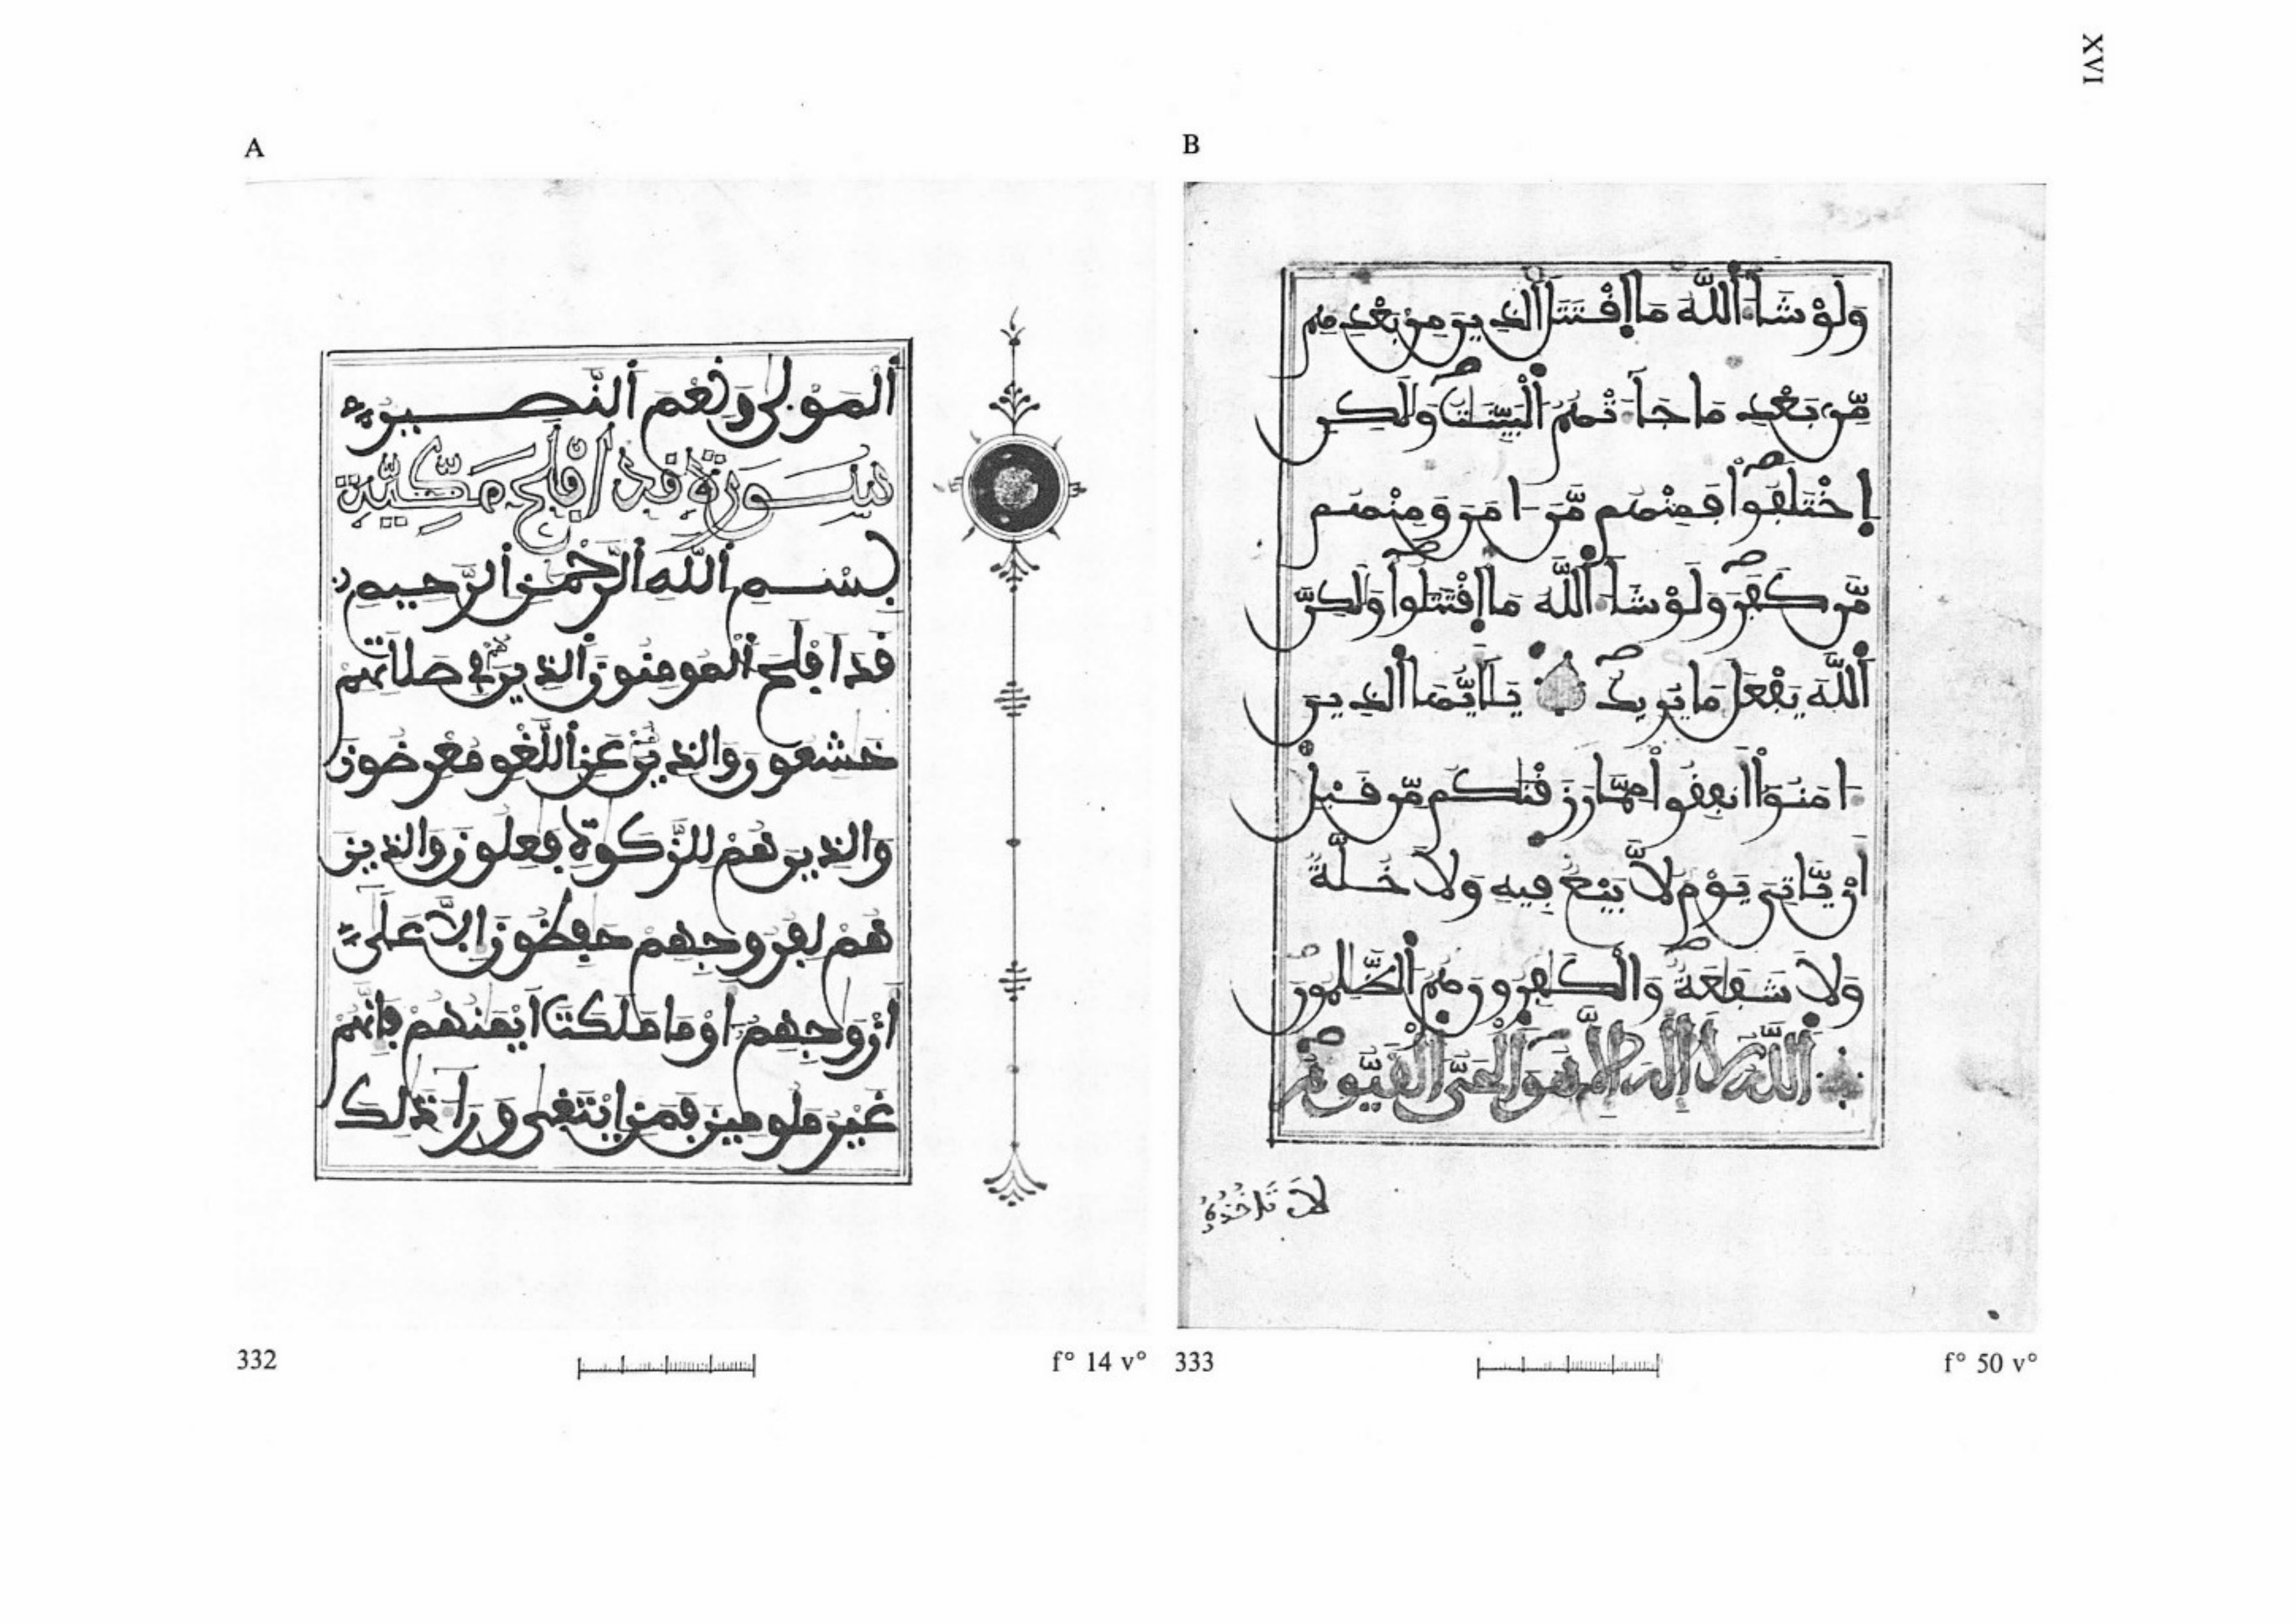 XVI
A
ألمولى ونعم ألنصير
سورة قد افلح مكية
بسم ألله ألرحمن ألرحيم
قد افلح ألمومنون ألذين هم في صلاتهم
خشعون والذين هم عن أللغو معرضون
والذين هم للزكوة فعلون والذين
هم لفروجهم حفظون إلا على
أزوجهم أو ما ملكت أيمنهم فإنهم
غير ملومين فمن إبتغى ورا ذلك
332
f° 14 v°
B
وَلَوْ شَآءَ أللَّهُ مَا إَقْتَتَلَ ألذِينَ مِنۢ بَعْدِهِم
مِّنۢ بَعْدِ مَا جَآءَتْهُمُ ألْبَيِّنَٰتُ وَلَٰكِنِ
إِخْتَلَفُواْ فَمِنْهُم مَّنَ امَنَ وَمِنْهُم
مَّن كَفَرَ وَلَوْ شَآءَ أللَّهُ مَا إَقْتَتَلُواْ وَلَٰكِنَّ
أَللَّهَ يَفْعَلُ مَا يُرِيدُ يَٰأَيُّهَا ألذِينَ
ءَامَنُوٓاْ أَنفِقُواْ مِمَّا رَزَقْنَٰكُم مِّن قَبْلِ
أَنْ يَّاتِيَ يَوْمٌ لَّا بَيْعٌ فِيهِ وَلَا خُلَّةٌ
وَلَا شَفَٰعَةٌ وَالْكَٰفِرُونَ هُمُ ألظَّٰلِمُونَ
أللَّهُ لَا إِلَٰهَ إِلَّا هُوَ ألْحَيُّ ألْقَيُّومُ
لَا تَاخُذُهُ
333
f° 50 v°